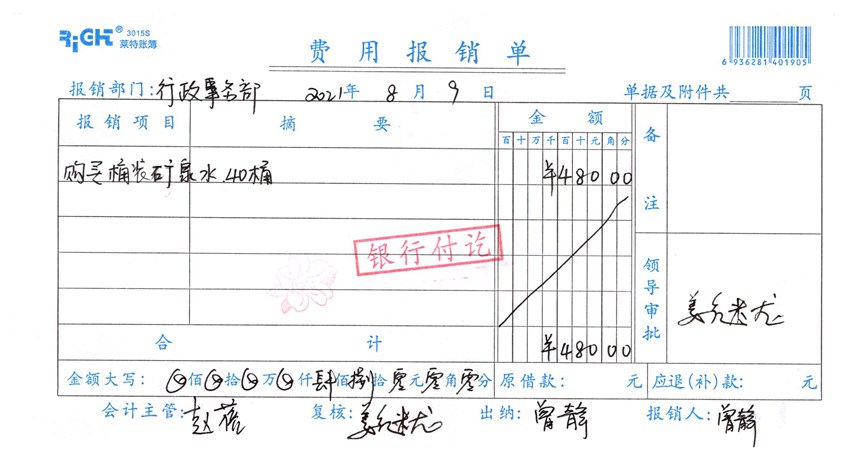 RiGHT® 3015S
莱特账簿
费用报销单
6 936281 401905
报销部门:行政事务部 2021年 8月 9日 单据及附件共 页
报销项目 摘要 金额 备注
百十万千百十元角分
购买桶装矿泉水 40桶 ¥48000
银行付讫
领导审批
合计 ¥48000
金额大写: ⊗佰⊗拾⊗万⊗仟肆佰捌拾零元零角零分 原借款: 元 应退(补)款: 元
会计主管: 赵蓓 复核: 出纳: 曾静 报销人: 曾静